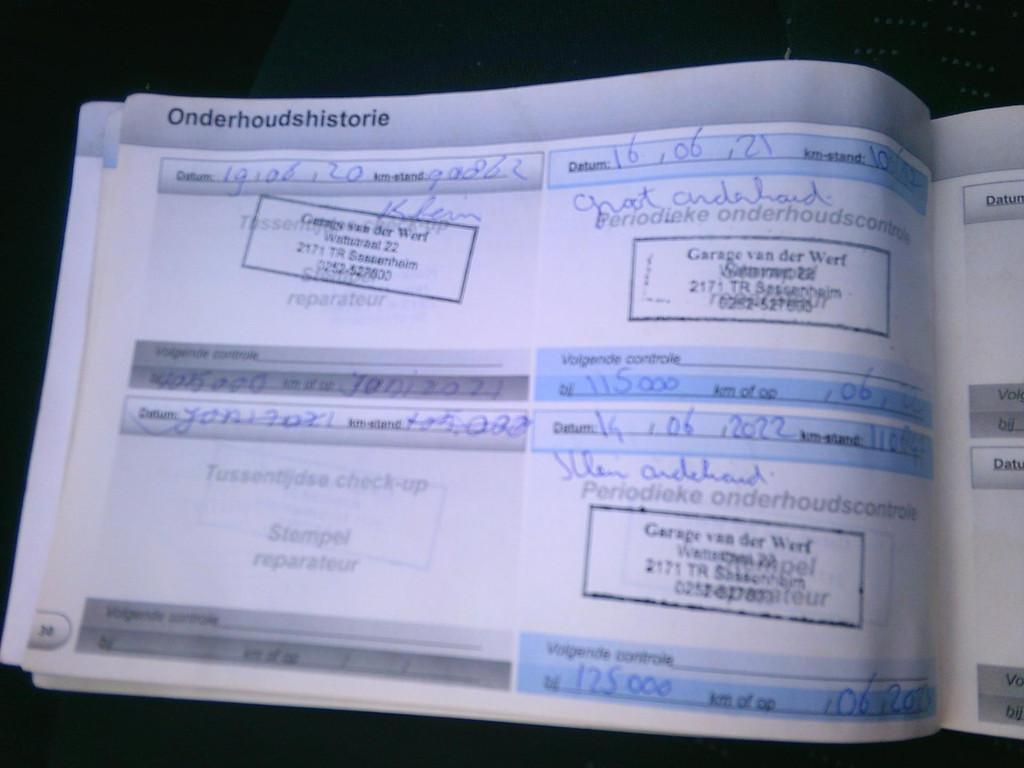 Onderhoudshistorie
Datum: 19,06,20 km-stand: 90862
Klein
Tussentijdse check-up
Garage van der Werf
Wattstraat 22
2171 TR Sassenheim
0252-527600
Stempel
reparateur
Volgende controle
bij 105.000 km of op Juni 2021
Datum: 16,06,21 km-stand:
Groot onderhoud
Periodieke onderhoudscontrole
Garage van der Werf
Wattstraat 22
2171 TR Sassenheim
0252-527600
Stempel
reparateur
Volgende controle
bij 115000 km of op ,06,
Datum: Juni 2021 km-stand: 105.000
Tussentijdse check-up
Stempel
reparateur
Volgende controle
bij km of op / /
Datum: 14,06,2022 km-stand:
Klein onderhoud
Periodieke onderhoudscontrole
Garage van der Werf
Wattstraat 22
2171 TR Sassenheim
0252-527600
Stempel
reparateur
Volgende controle
bij 125000 km of op ,06,
30
Datum
bij
Datu
bij